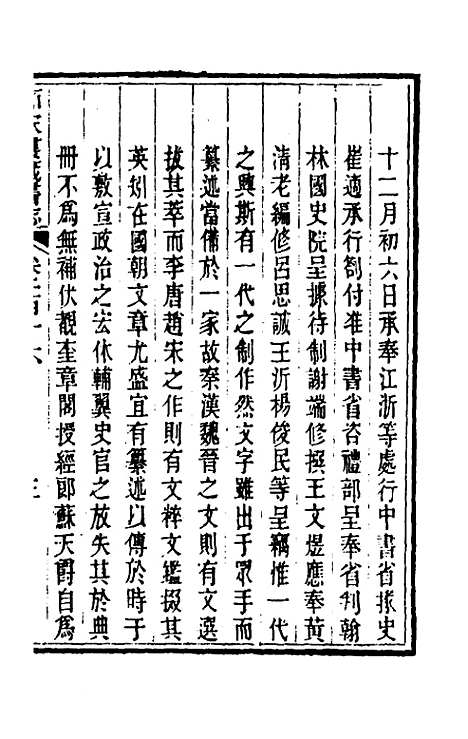 十二月初六日承奉江浙等處行中書省掾史
崔適承行劄付准中書省咨禮部呈奉省判翰
林國史院呈據待制謝端修撰王文煜應奉黃
清老編修呂思誠王沂楊俊民等呈竊惟一代
之興斯有一代之制作然文字雖出于眾手而
纂述當備於一家故秦漢魏晉之文則有文選
拔其萃而李唐趙宋之作則有文粹文鑑掇其
英矧在國朝文章尤盛宜有纂述以傳於時于
以敷宣政治之宏休輔翼史官之放失其於典
冊不爲無補伏覩奎章閣授經郎蘇天爵自爲